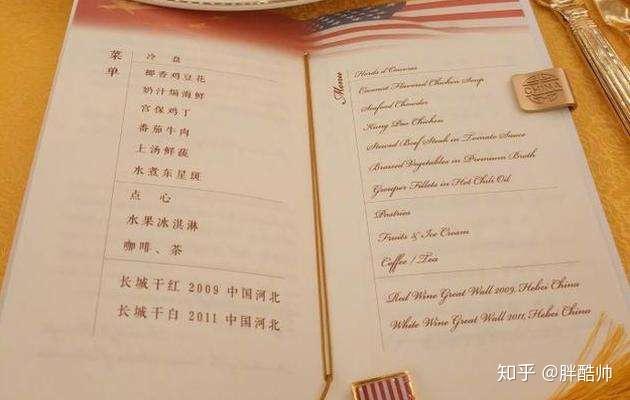 菜单
冷盘
椰香鸡豆花
奶汁焗海鲜
宫保鸡丁
番茄牛肉
上汤鲜蔬
水煮东星斑
点心
水果冰淇淋
咖啡、茶
长城干红 2009 中国河北
长城干白 2011 中国河北
Menu
Hords d'Oeuvres
Coconut Flavored Chicken Soup
Seafood Chowder
Kung Pao Chicken
Stewed Beef Steak in Tomato Sauce
Braised Vegetables in Premium Broth
Grouper Fillets in Hot Chili Oil
Pastries
Fruits & Ice Cream
Coffee / Tea
Red Wine Great Wall 2009, Hebei China
White Wine Great Wall 2011, Hebei China
知乎 @胖酷帅